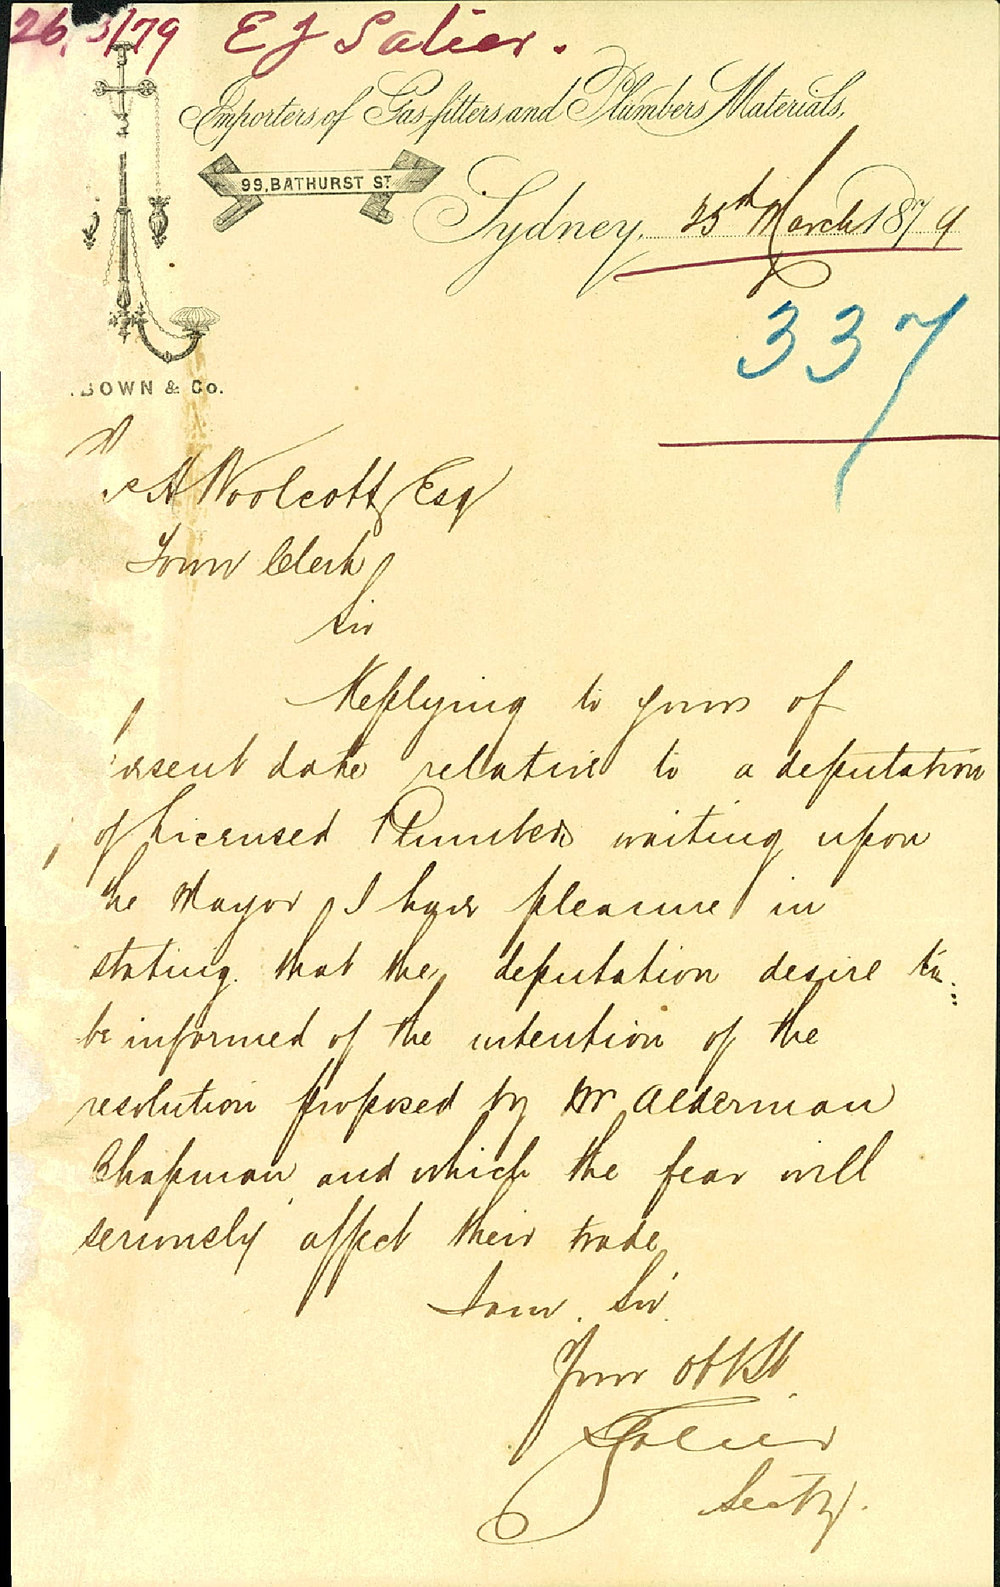 26/3/79 E J Salier.
Importers of Gas-fitters and Plumbers Materials,
99, BATHURST ST
Sydney, 25th March 1879
337
BOWN & Co.
A Woolcott Esq
Town Clerk
Sir
Replying to yours of
resent date relative to a deputation
of Licensed Plumbers waiting upon
the Mayor I have pleasure in
stating that the deputation desire to
be informed of the intention of the
resolution proposed by Mr Alderman
Chapman and which the fear will
seriously affect their trade
I am Sir
Your Obt St
Salier
Secty.